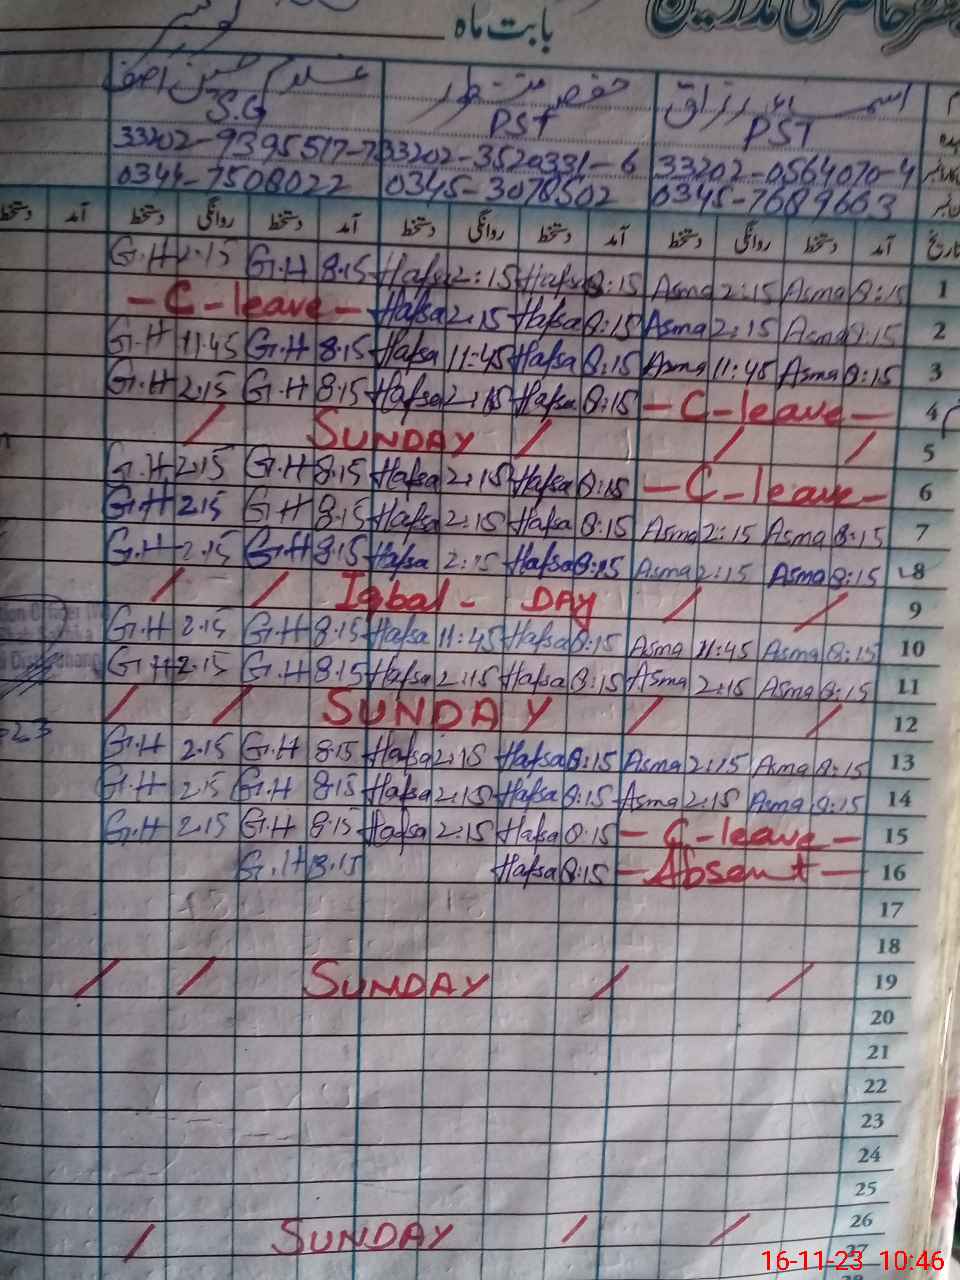 بابت ماہ
S.G PST PST
33202-3520331-6 33202-0564070-4
0344-7508022 0345-3078502 0345-7689663
دستخط آمد دستخط روانگی دستخط آمد دستخط روانگی دستخط آمد دستخط روانگی دستخط آمد تاریخ
G.H 2.15 G.H 8.15 Hafsa 2:15 Hafsa 8:15 Asma 2:15 Asma 8:15 1
- C - leave - Hafsa 2:15 Hafsa 8:15 Asma 2:15 Asma 8:15 2
G.H 11.45 G.H 8.15 Hafsa 11:45 Hafsa 8:15 Asma 11:45 Asma 8:15 3
G.H 2.15 G.H 8.15 Hafsa 2:15 Hafsa 8:15 - C - leave - 4
/ SUNDAY / / / 5
G.H 2.15 G.H 8.15 Hafsa 2:15 Hafsa 8:15 - C - leave - 6
G.H 2.15 G.H 8.15 Hafsa 2:15 Hafsa 8:15 Asma 2:15 Asma 8:15 7
G.H 2.15 G.H 8.15 Hafsa 2:15 Hafsa 8:15 Asma 2:15 Asma 8:15 8
/ / Iqbal - DAY / / 9
G.H 2.15 G.H 8.15 Hafsa 11:45 Hafsa 8:15 Asma 11:45 Asma 8:15 10
G.H 2.15 G.H 8.15 Hafsa 2:15 Hafsa 8:15 Asma 2:15 Asma 8:15 11
/ / SUNDAY / / 12
G.H 2.15 G.H 8.15 Hafsa 2:15 Hafsa 8:15 Asma 2:15 Asma 8:15 13
G.H 2.15 G.H 8.15 Hafsa 2:15 Hafsa 8:15 Asma 2:15 Asma 8:15 14
G.H 2.15 G.H 8.15 Hafsa 2:15 Hafsa 8:15 - C - leave - 15
G.H 8.15 Hafsa 8:15 - Absent - 16
17
18
/ / SUNDAY / / 19
20
21
22
23
24
25
/ SUNDAY / / 26
27
16-11-23 10:46